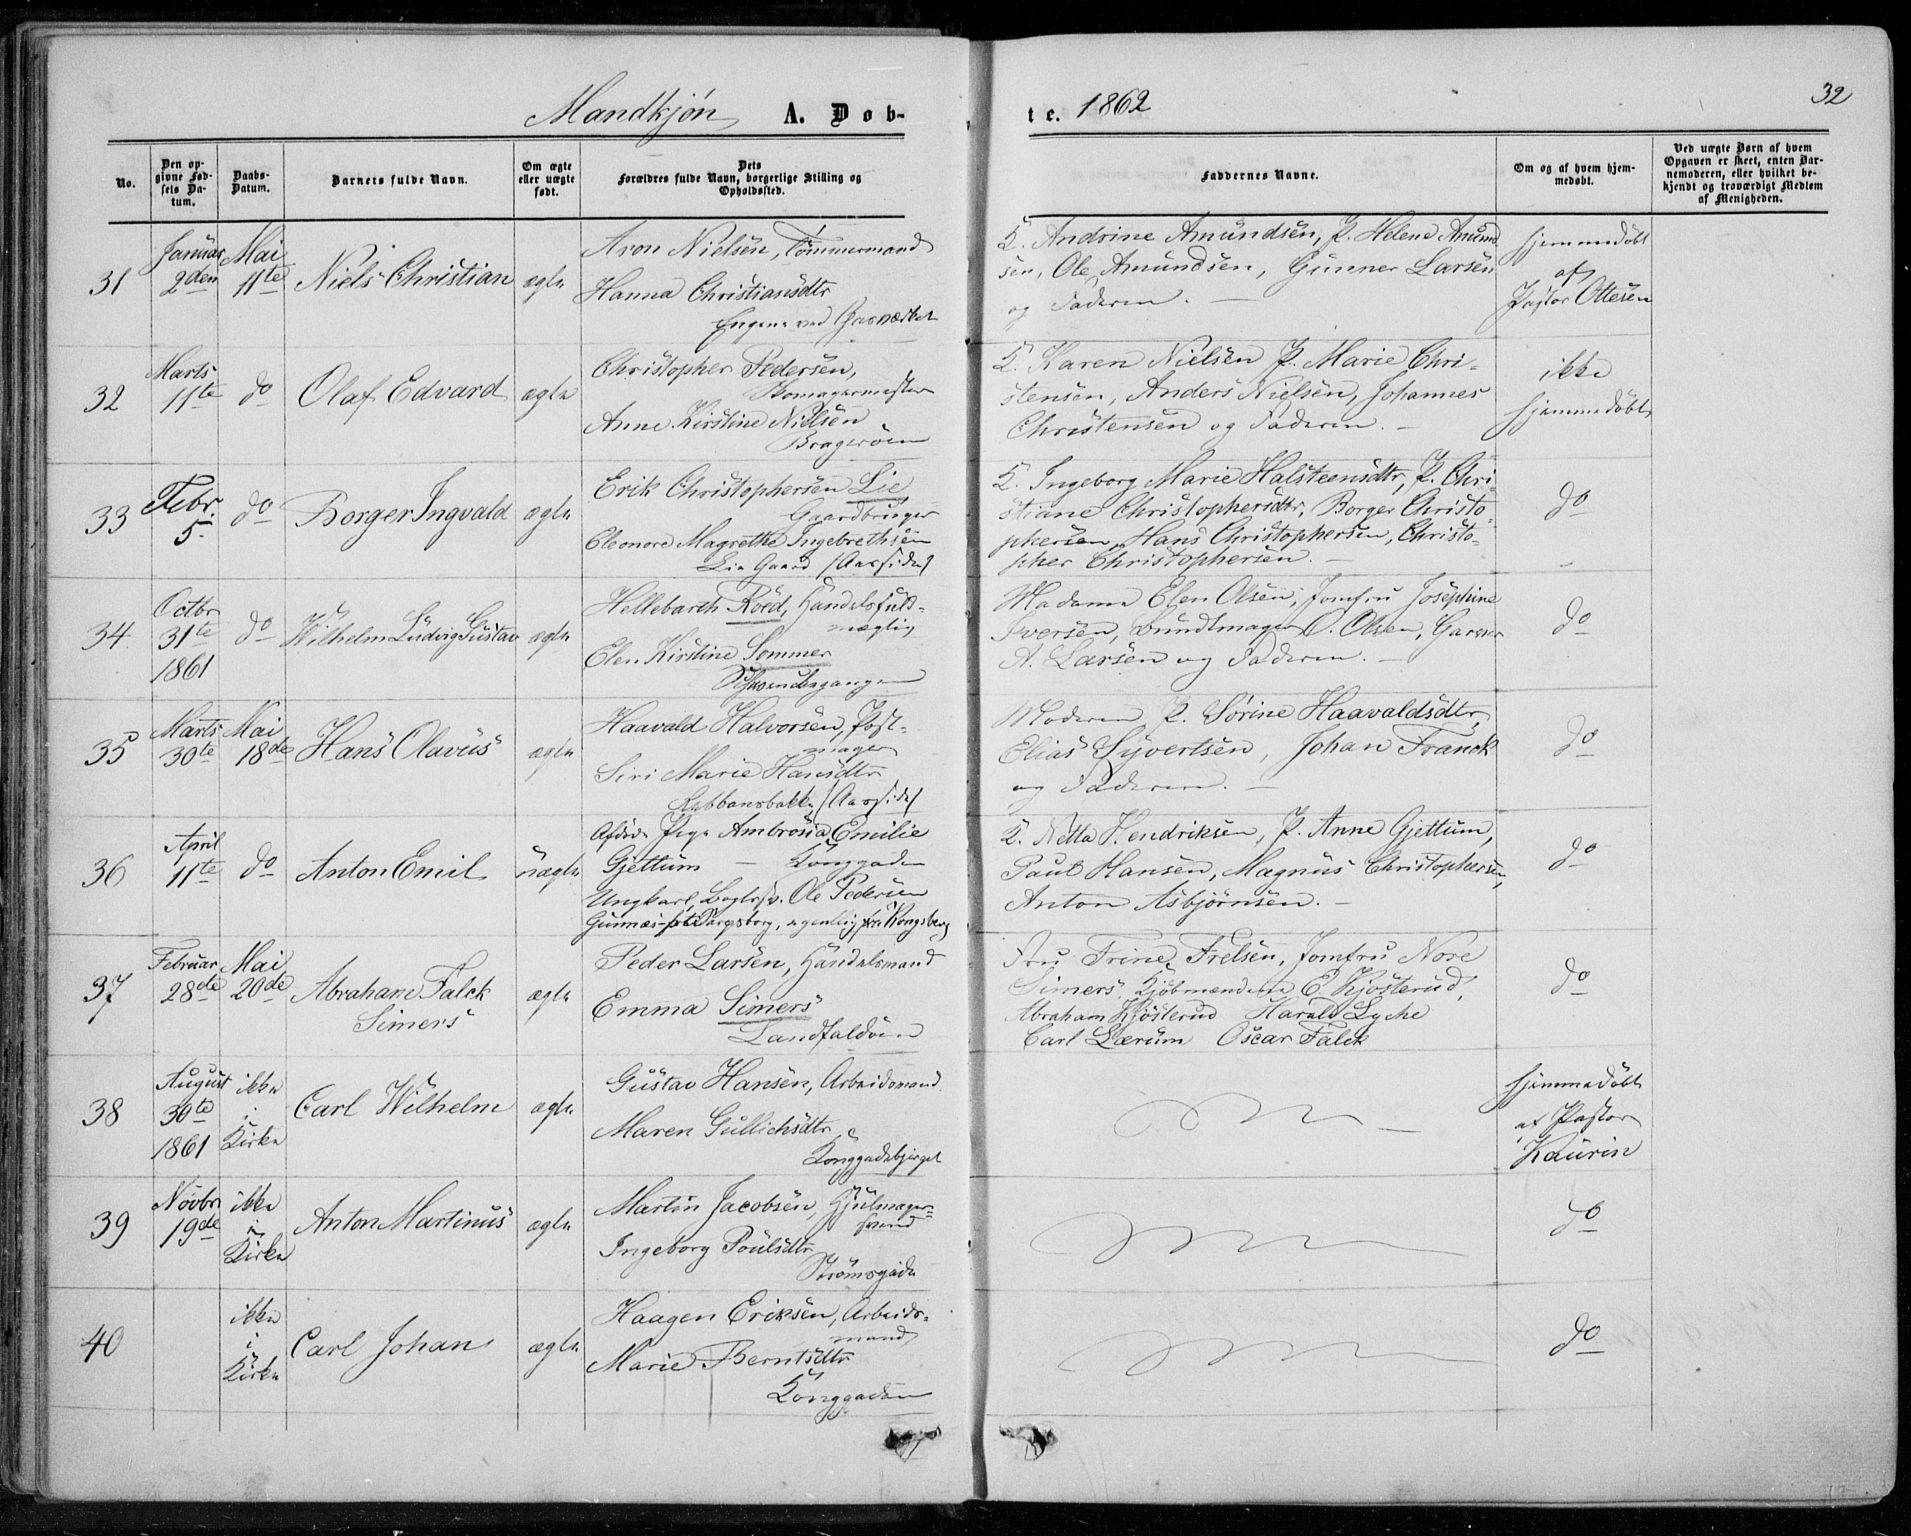 Mandkjøn A. Døb-
te. 1862
32
No.
Den op-
givne Fød-
sels Da-
tum.
Daabs-
Datum.
Barnets fulde Navn.
Om ægte
eller uægte
født.
Dets
Forældres fulde Navn, borgerlige Stilling og
Opholdssted.
Faddernes Navne.
Om og af hvem hjem-
medøbt.
Ved uægte Børn af hvem
Opgaven er skeet, enten Bar-
nemoderen, eller hvilket be-
kjendt og troværdigt Medlem
af Menigheden.
31
Januar
2den
Mai
11te
Niels Christian
ægte
Aron Nielsen, Tømmermand
Hanna Christiansdtr
Engene ved Gasværket
K. Andrine Amundsen, P. Helene Amund
sen, Ole Amundsen, Gunner Larsen
og Faderen.
hjemmedøbt
af
Pastor Ottesen
32
Marts
11te
do
Olaf Edvard
ægte
Christopher Pedersen,
Skomagermester
Anne Kirstine Nielsen
Bragerøen
K. Karen Nielsen P. Marie Chri-
stensen, Anders Nielsen, Johannes
Christensen og Faderen.
ikke
hjemmedøbt
33
Febr.
5
do
Borger Ingvald
ægte
Erik Christophersen Lie
Gaardbruger
Eleonore Magrethe Ingebrethsen
Lie Gaard /Aassiden/
K. Ingeborg Marie Halsteensdtr, P. Chri-
stiane Christophersdtr, Borger Christo-
phersen, Hans Christophersen, Christo-
pher Christophersen.
do
34
Octbr
31te
1861
do
Wilhelm Ludvig Gustav
ægte
Hellebarth Röed, Handelsfuld-
mægtig
Elen Kirstine Sommer
Madame Elen Olsen, Jomfru Josephine
Iversen, Bundtmager O. Olsen, Garver
A. Larsen og Faderen.
do
35
Marts
30te
Mai
18de
Hans Olavus
ægte
Haavald Halvorsen, Post-
mager
Siri Marie Hansdtr
/Aassiden/
Moderen, P. Sørine Haavaldsdtr,
Elias Syvertsen, Johan Franck
og Faderen.
do
36
April
11te
do
Anton Emil
uægte
Afdøde Pige Ambrosia Emilie
Gjettum — Konggaden
Ungkarl, Ole Pedersen
K. Netta Hendriksen, P. Anne Gjettum,
Paul Hansen, Magnus Christophersen,
Anton Asbjørnsen.
do
37
Februar
28de
Mai
20de
Abraham Falck
Simers
ægte
Peder Larsen, Handelsmand
Emma Simers
Landfaldøen
Fru Trine Frelsen, Jomfru Nore
Simers, Kjøbmændene E. Kjøsterud,
Abraham Kjøsterud Harald Lyche
Carl Lærum Oscar Falck
do
38
August
30te
1861
ikke
i
Kirke
Carl Wilhelm
ægte
Gustav Hansen, Arbeidsmand
Maren Gullichsdtr
Konggadebjerget
hjemmedøbt
af Pastor
Kaurin
39
Novbr
19de
ikke
i
Kirke
Anton Martinus
ægte
Martin Jacobsen, Hjulmager-
svend
Ingeborg Poulsdtr
Strømsgade
do
40
ikke
i
Kirke
Carl Johan
ægte
Haagen Eriksen, Arbeids-
mand
Marie Berntsdtr
Konggaden
do